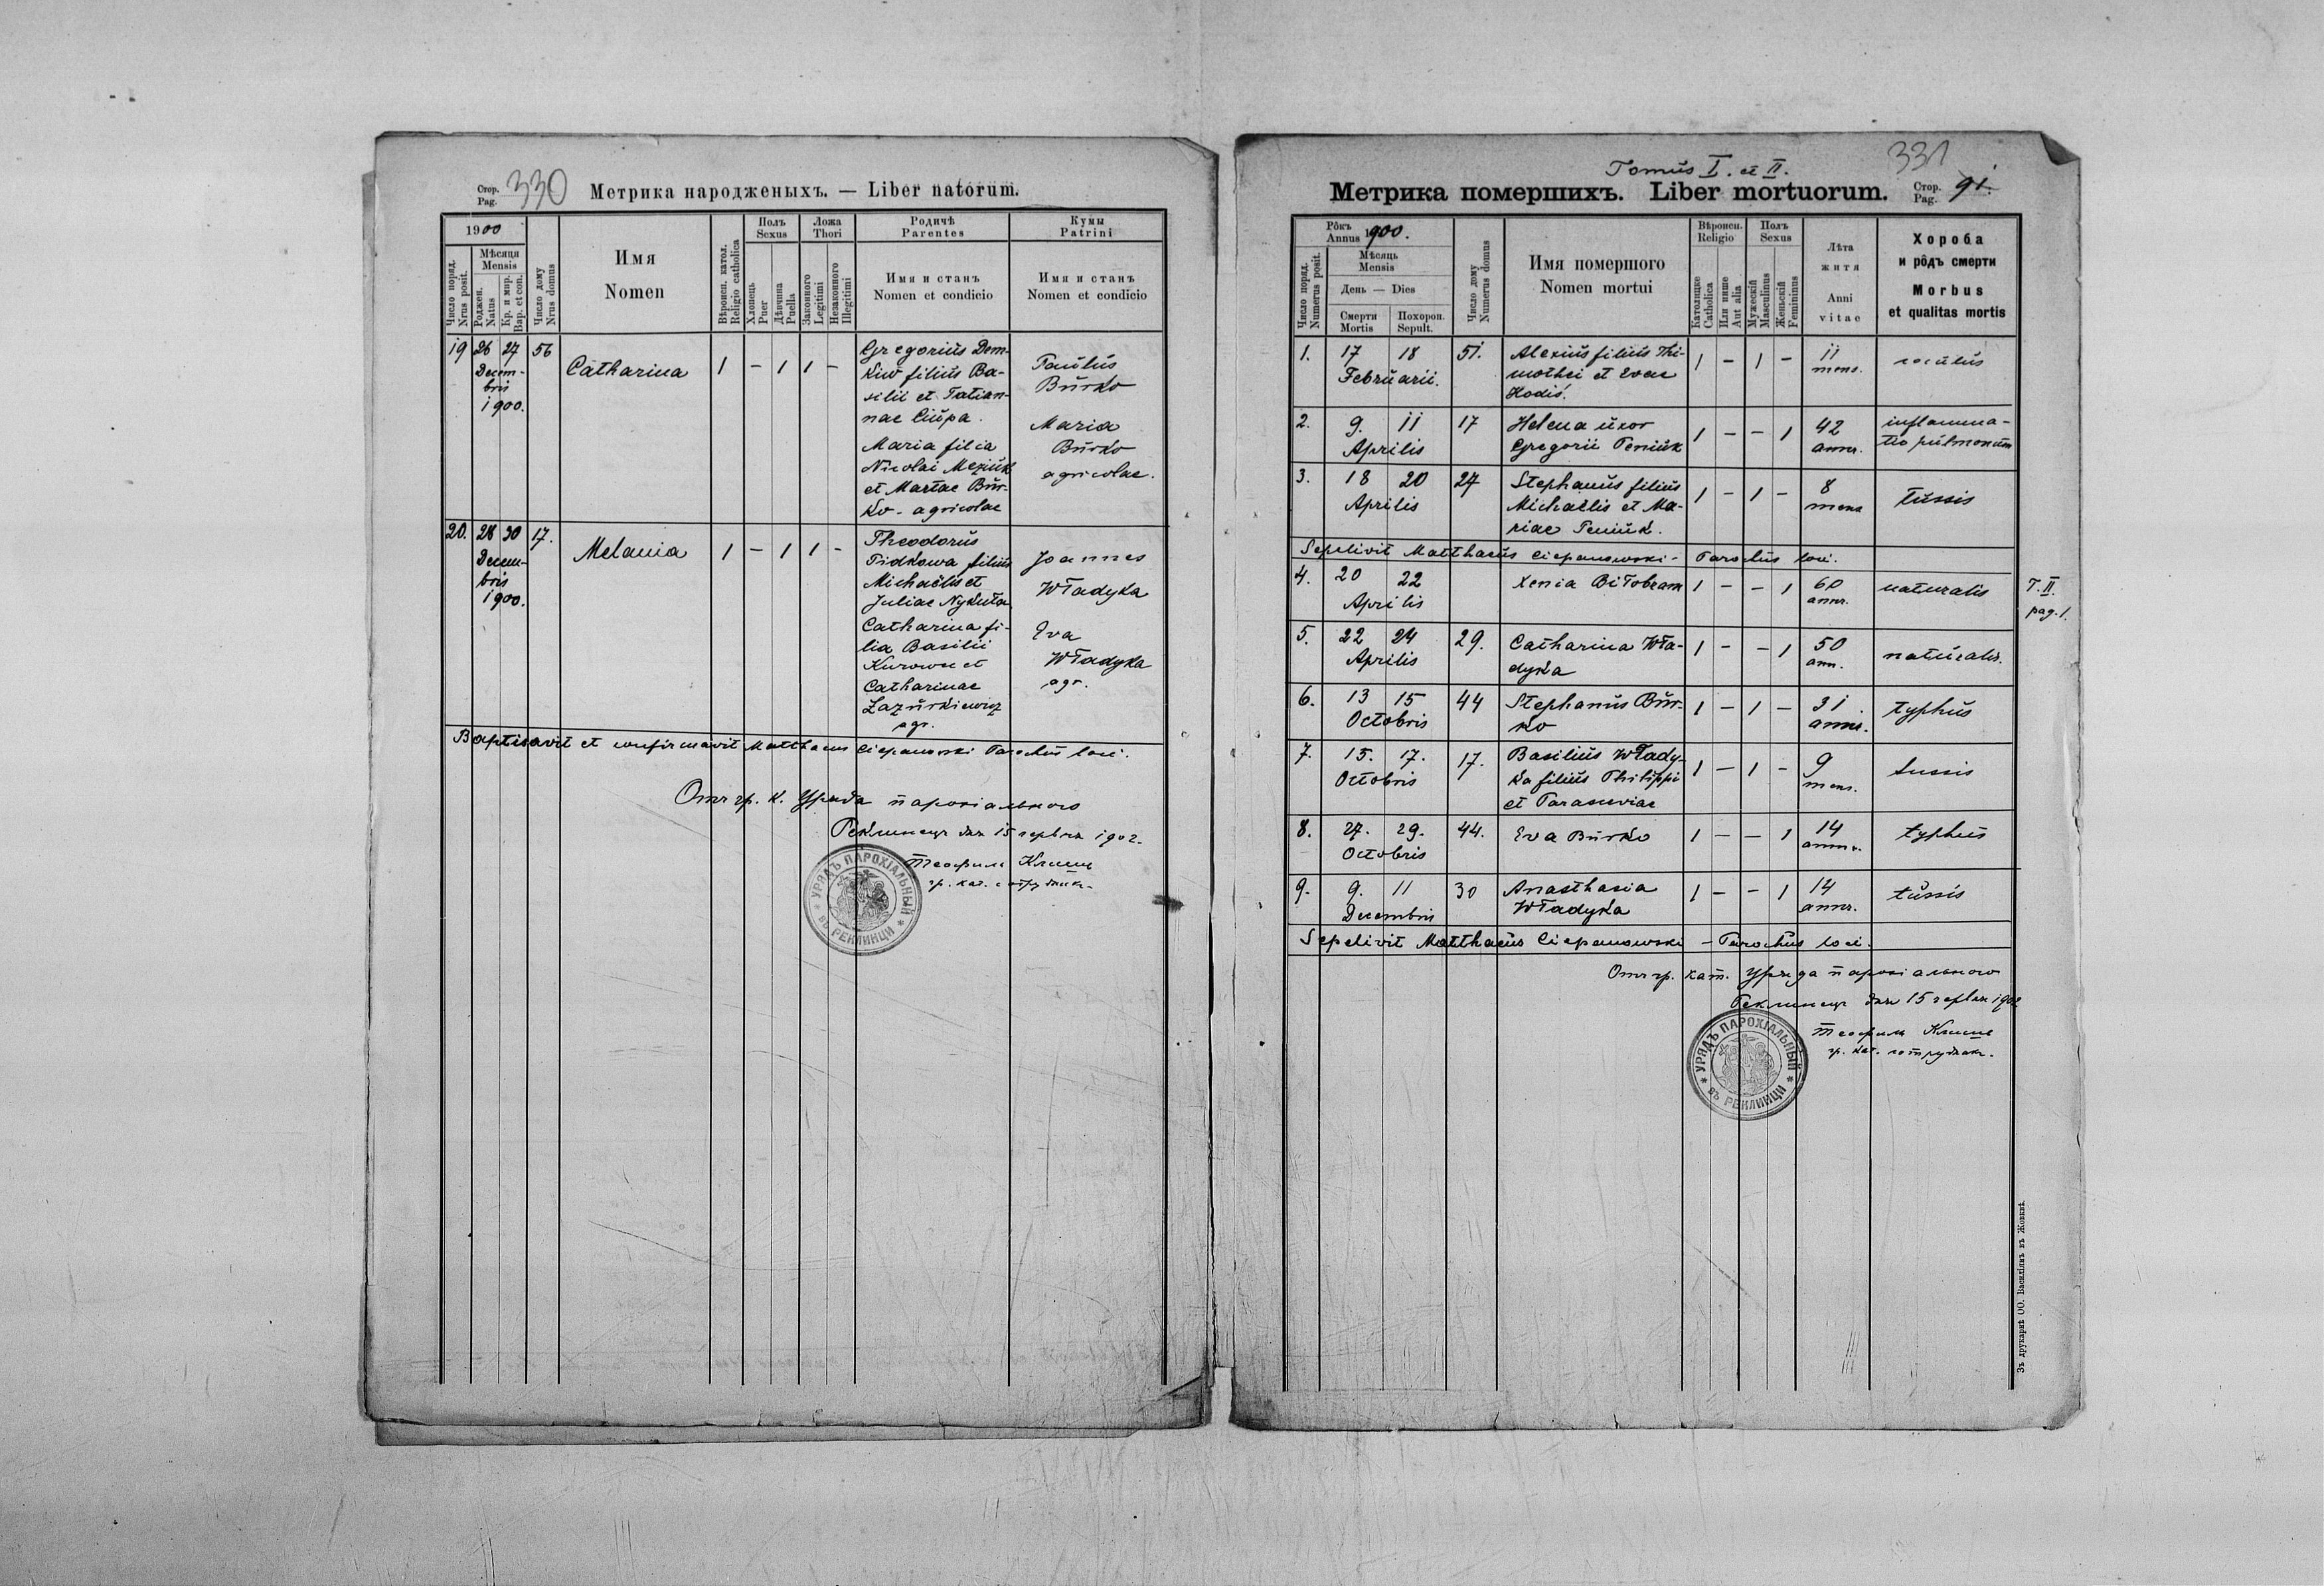 Стор.
Pag.
330
Метрика народженыхъ. — Liber natorum.
1900
Число поряд.
Nrus posit.
Мѣсяця
Mensis
Роджен.
Natus
Кр. и мѵр.
Bap. et con.
Число дому
Nrus domus
Имя
Nomen
Вѣроисп. катол.
Religio catholica
Полъ
Sexus
Хлопець
Puer
Дѣвчина
Puella
Ложа
Thori
Законного
Legitimi
Незаконного
Illegitimi
Родичѣ
Parentes
Имя и станъ
Nomen et condicio
Кумы
Patrini
Имя и станъ
Nomen et condicio
19 26 27 56
Decem-
bris
1900.
Catharina
1 – 1 1 –
Gregorius Dem-
kiw filius Ba-
silii et Tatian-
nae Ciupa.
Maria filia
Nicolai Meziuk
et Martae Bur-
ko - agricolae
Paulus
Burko
Maria
Burko
agricolae.
20. 28 30 17.
Decem-
bris
1900.
Melania
1 – 1 1 –
Theodorus
Pidkowa filius
Michaelis et
Juliae Nykuła
Catharina fi-
lia Basilii
et
Catharinae
Łazurkiewicz
agr.
Joannes
Władyka
Eva
Władyka
agr.
Baptisavit et confirmavit Matthaeus Ciepanowski Parochus loci.
Отъ гр. к. Уряда парохіального
Реклинець дня 15 червня 1902.
Теофиль
гр. кат. сотрудникъ
УРЯДЪ ПАРОХІАЛЬНЫЙ
ВЪ РЕКЛИНЦИ
Tomus I. et II.
331
Метрика помершихъ. Liber mortuorum.
Стор.
Pag.
91.
Рôкъ
Annus 1900.
Число поряд.
Numerus posit.
Мѣсяць
Mensis
День — Dies
Смерти
Mortis
Похорон.
Sepult.
Число дому
Numerus domus
Имя помершого
Nomen mortui
Вѣроисп.
Religio
Католицке
Catholica
Или инше
Aut alia
Полъ
Sexus
Мужескій
Masculinus
Женьскій
Femininus
Лѣта
житя
Anni
vitae
Хороба
и рôдъ смерти
Morbus
et qualitas mortis
1. 17 18 51.
Februarii.
Alexius filius Thi-
mothei et Evae
Hodis.
1 – 1 –
11
mens.
2. 9. 11 17
Aprilis
Helena uxor
Gregorii Peniuk
1 – – 1
42
annor.
inflamma-
tio pulmonum
3. 18 20 27
Aprilis
Stephanus filius
Michaelis et Ma-
riae Peniuk.
1 – 1 –
8
mens
tussis
Sepelivit Matthaeus Ciepanowski - Parochus loci.
4. 20 22
Aprilis
Xenia Biłobram
1 – – 1
60
annor.
naturalis
T. II.
pag. 1.
5. 22 24 29.
Aprilis
Catharina Wła-
dyka
1 – – 1
50
ann.
naturalis.
6. 13 15 44
Octobris
Stephanus Bur-
ko
1 – 1 –
31
annor.
typhus
7. 15. 17. 17.
Octobris
Basilius Włady-
ka filius Philippi
et Parasceviae
1 – 1 –
9
mens.
tussis
8. 27. 29. 44.
Octobris
Eva Burko
1 – – 1
14
annor.
typhus
9. 9. 11 30
Decembris
Anasthasia
Władyka
1 – – 1
14
annor.
tussis
Sepelivit Matthaeus Ciepanowski - Parochus loci.
Отъ гр. кат. Уряда парохіального
Реклинець дня 15 червня 1902
Теофиль
гр. кат. сотрудникъ.
УРЯДЪ ПАРОХІАЛЬНЫЙ
ВЪ РЕКЛИНЦИ
Зъ друкарнѣ ОО. Василіянъ въ Жовквѣ.